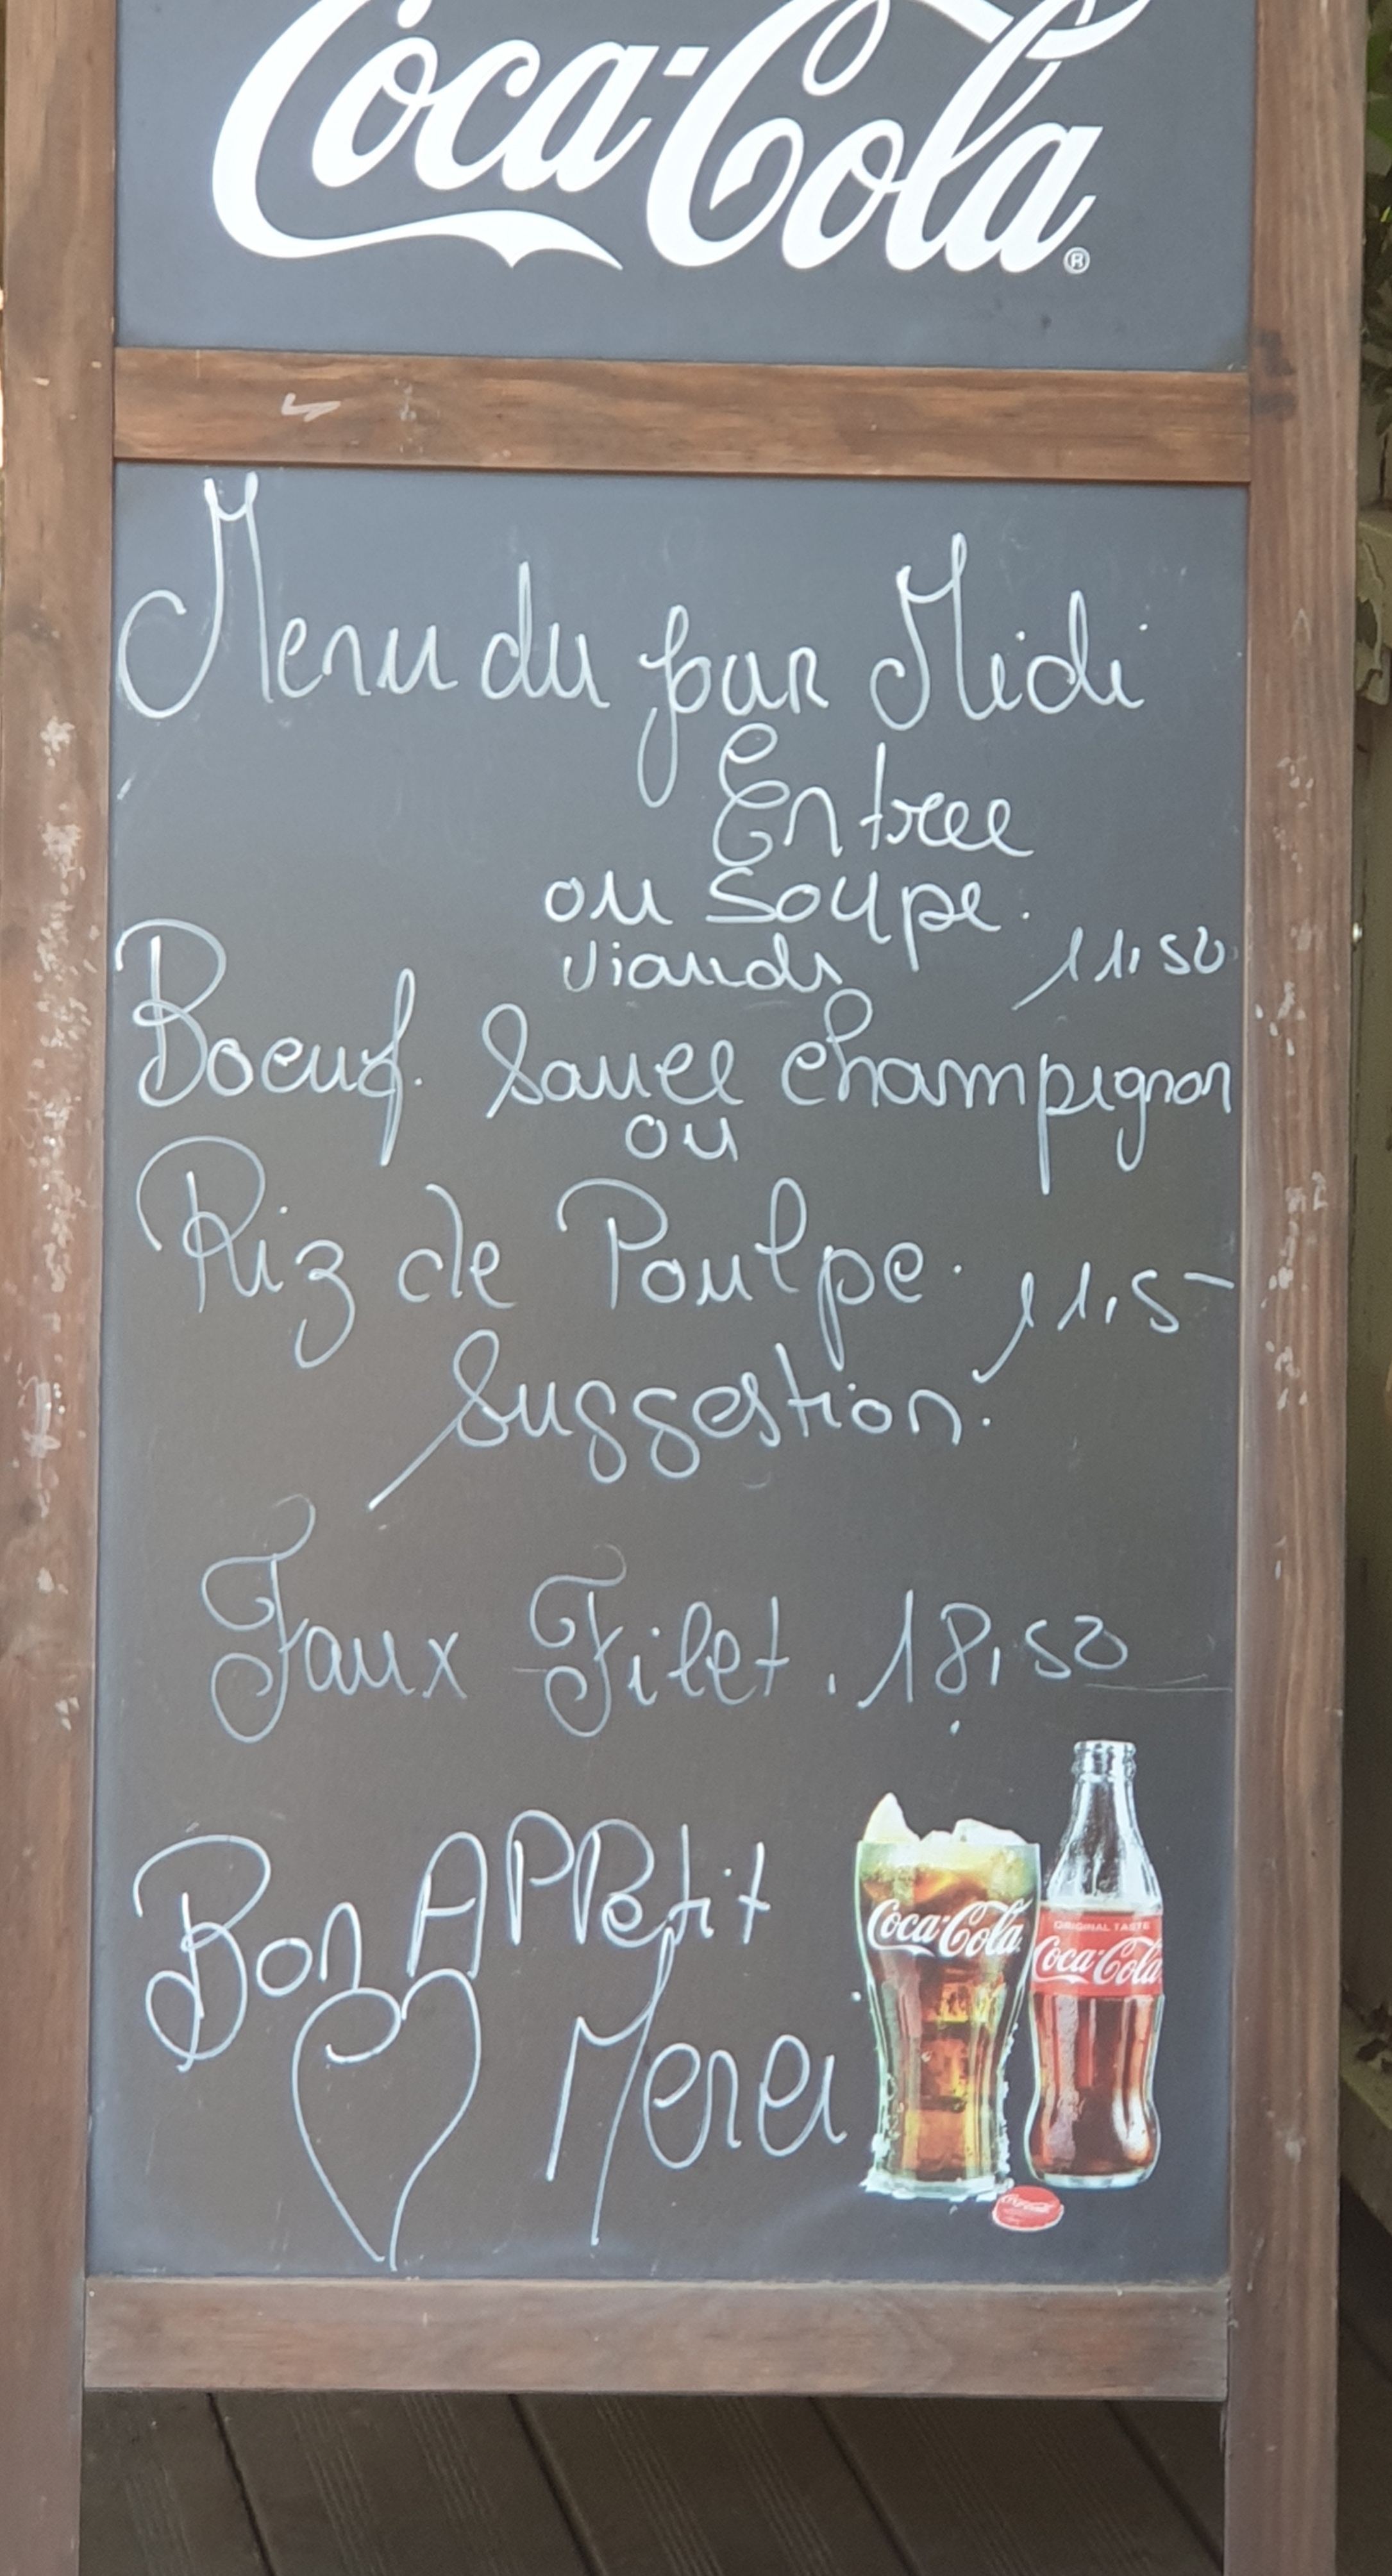 Coca-Cola®
Menu du jour Midi
Entree
ou Soupe.
viande 11,50
Boeuf. Sauce champignon
ou
Riz de Poulpe. 11,5-
Suggestion.
Faux Filet. 18,50
Bon APPetit
Merci
Coca-Cola
ORIGINAL TASTE
Coca-Cola